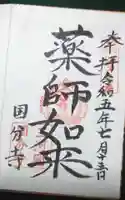 奉拝 令和五年七月十三日
薬師如来
国分寺